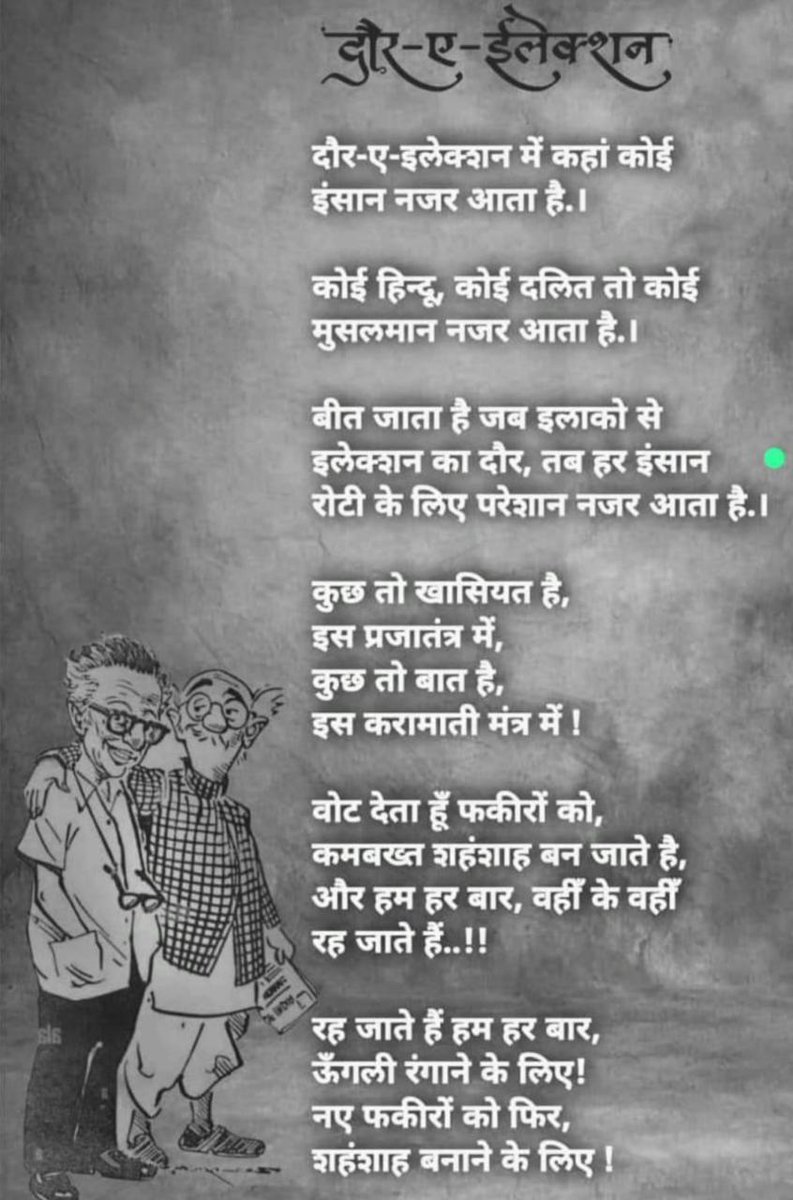 दौर-ए-ईलेक्शन
दौर-ए-इलेक्शन में कहां कोई
इंसान नजर आता है.।
कोई हिन्दू, कोई दलित तो कोई
मुसलमान नजर आता है.।
बीत जाता है जब इलाको से
इलेक्शन का दौर, तब हर इंसान
रोटी के लिए परेशान नजर आता है.।
कुछ तो खासियत है,
इस प्रजातंत्र में,
कुछ तो बात है,
इस करामाती मंत्र में !
वोट देता हूँ फकीरों को,
कमबख्त शहंशाह बन जाते है,
और हम हर बार, वहीँ के वहीँ
रह जाते हैं..!!
रह जाते हैं हम हर बार,
ऊँगली रंगाने के लिए!
नए फकीरों को फिर,
शहंशाह बनाने के लिए !